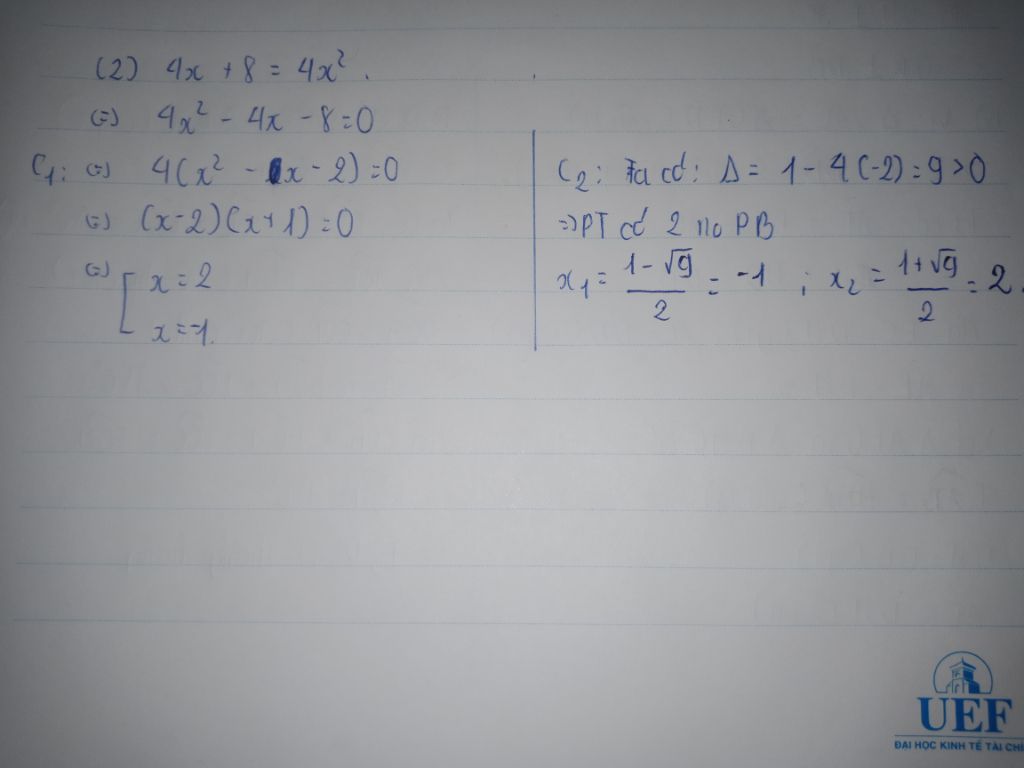 (2) 4x + 8 = 4x².
(=) 4x² - 4x - 8 = 0
C₁: (=) 4(x² - 1x - 2) = 0
(=) (x-2)(x+1) = 0
(=) [ x = 2
x = -1.
C₂: Ta có: Δ = 1 - 4(-2) = 9 > 0
=> PT có 2 no PB
x₁ = (1 - √9)/2 = -1 ; x₂ = (1 + √9)/2 = 2.
UEF
ĐẠI HỌC KINH TẾ TÀI CHÍ